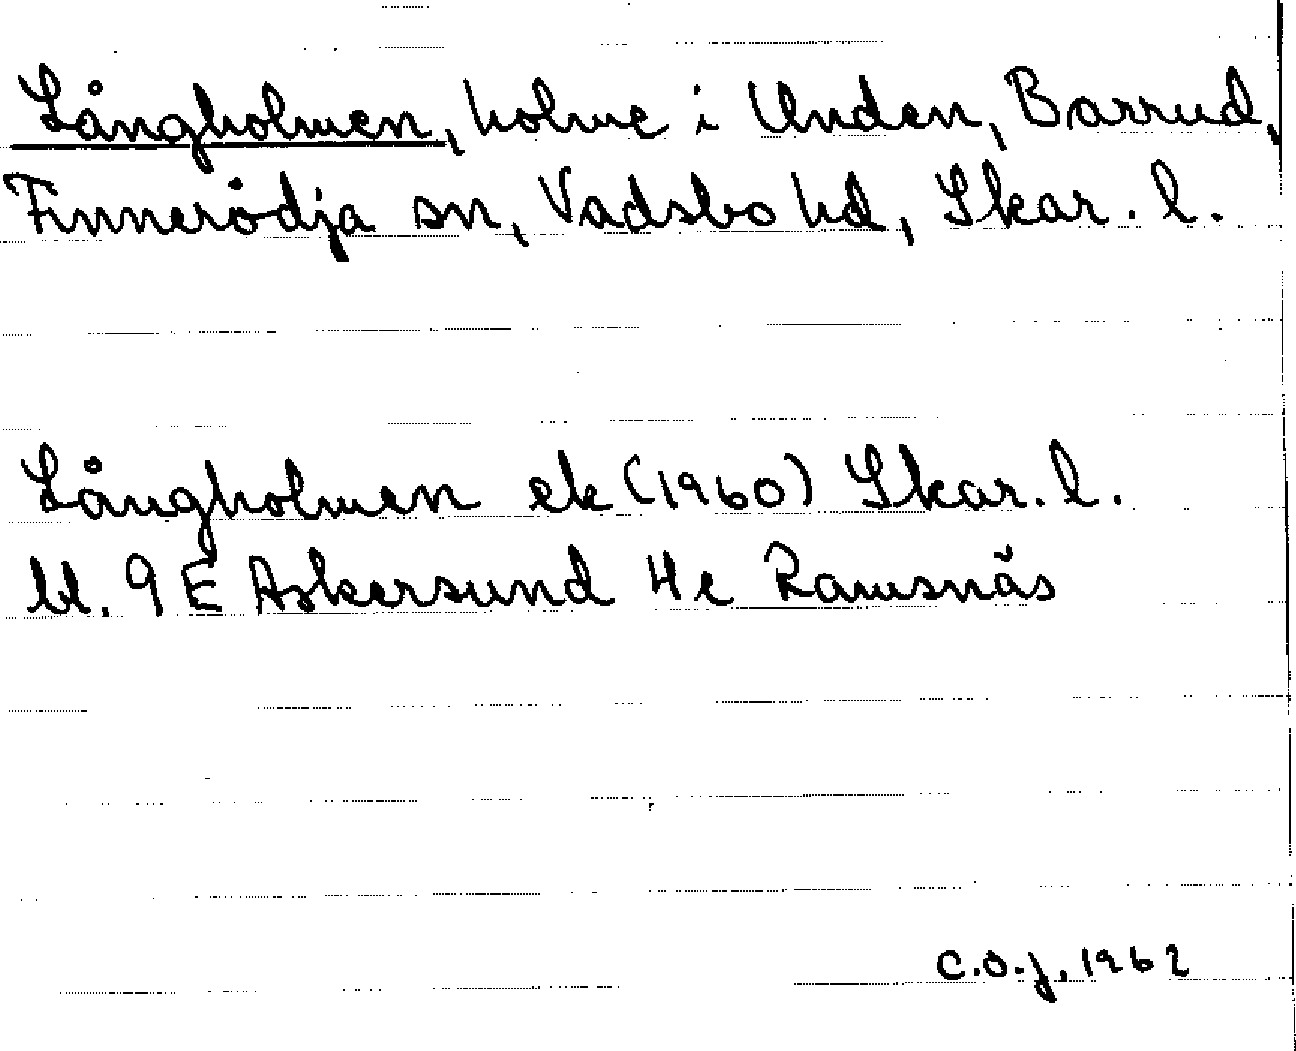 Långholmen, holme i Unden, Barrud,
Finnerödja sn, Vadsbo hd, Skar. l.
Långholmen ek (1960) Skar. l.
bl. 9 E Askersund 4 e Ramsnäs
C.O.J. 1962